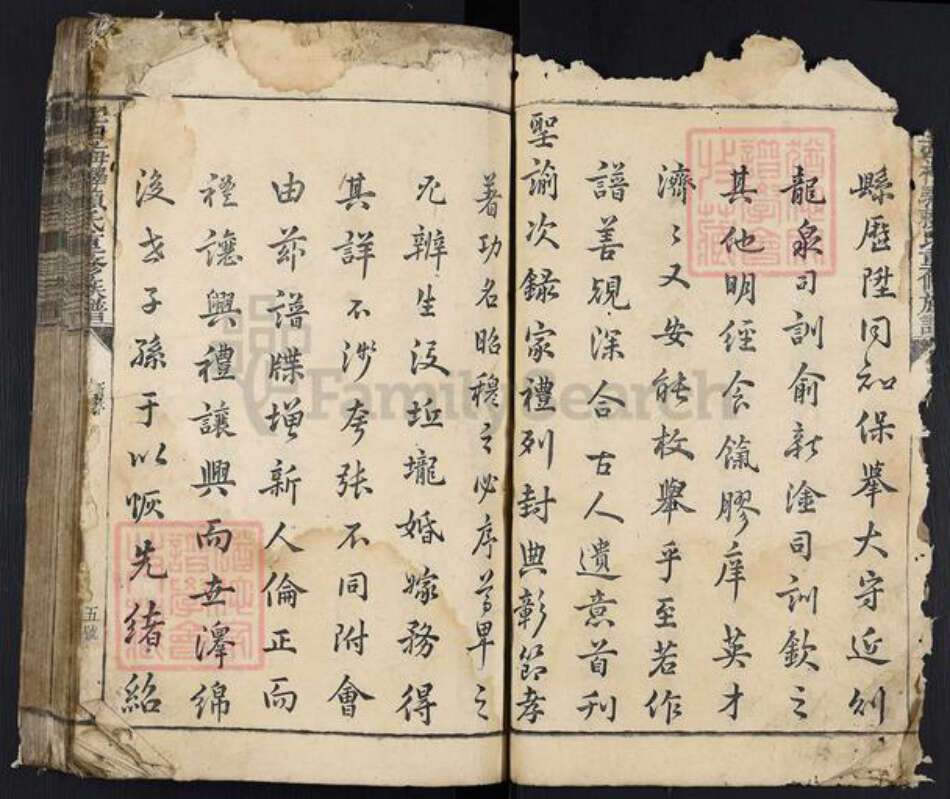 縣歷陞同知保舉大守近刽
龍泉司訓俞新淦司訓欽之
其他明經食餼膠庠英才
濟〻又安能枚舉乎至若作
譜善規深合古人遺意首刋
聖諭次錄家禮列封典彰節孝
著功名昭穆之必序尊卑之
兂辨生没坵壠婚嫁務得
其詳不涉夸張不同附會
由茲譜牒增新人倫正而
禮讓興禮讓興而世澤綿
後世子孫于以恢先緒紹
重修族譜
五號
FamilySearch